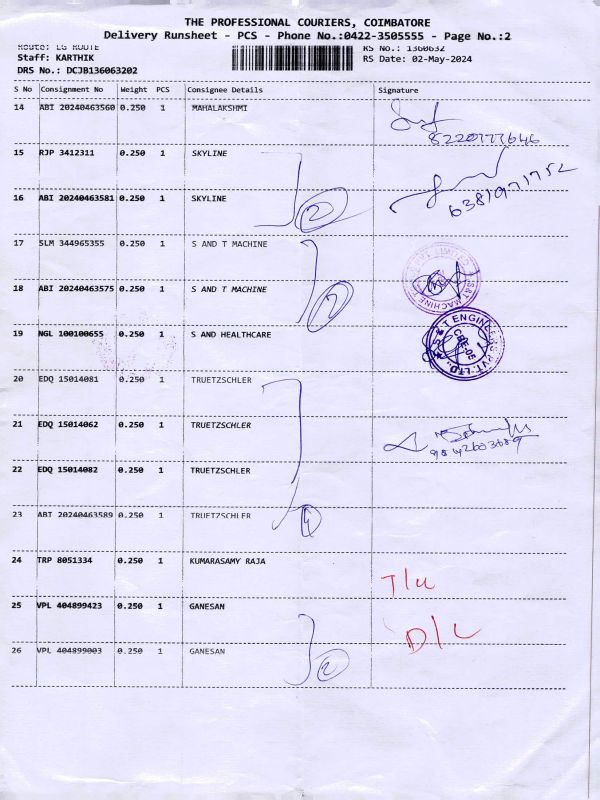 THE PROFESSIONAL COURIERS, COIMBATORE
Delivery Runsheet - PCS - Phone No.:0422-3505555 - Page No.:2
Route: LG ROUTE RS No.: 1360632
Staff: KARTHIK RS Date: 02-May-2024
DRS No.: DCJB136063202
S No Consignment No Weight PCS Consignee Details Signature
14 ABI 20240463560 0.250 1 MAHALAKSHMI
8220777646
15 RJP 3412311 0.250 1 SKYLINE
6381971752
16 ABI 20240463581 0.250 1 SKYLINE
2
17 SLM 344965355 0.250 1 S AND T MACHINE
18 ABI 20240463575 0.250 1 S AND T MACHINE
2
19 NGL 100100655 0.250 1 S AND HEALTHCARE
S&T ENGINEERS PVT. LTD.
CBE-05
20 EDQ 15014081 0.250 1 TRUETZSCHLER
21 EDQ 15014062 0.250 1 TRUETZSCHLER
22 EDQ 15014082 0.250 1 TRUETZSCHLER
23 ABI 20240463589 0.250 1 TRUETZSCHLER
4
24 TRP 8051334 0.250 1 KUMARASAMY RAJA
T/L
25 VPL 404899423 0.250 1 GANESAN
D/L
26 VPL 404899003 0.250 1 GANESAN
2